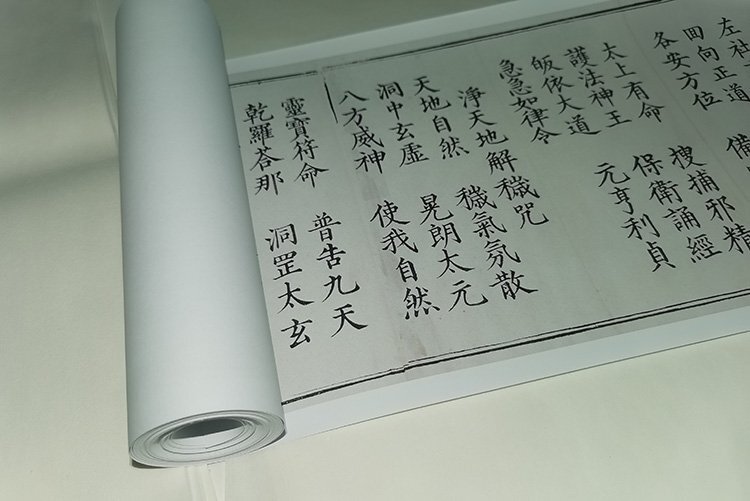 左社
回向正道
各安方位 備
太上有命 搜捕邪精
護法神王 保衛誦經
皈依大道 元亨利貞
急急如律令
淨天地解穢咒
天地自然 穢氣氛散
洞中玄虛 晃朗太元
八方威神 使我自然
靈寶符命 普告九天
乾羅荅那 洞罡太玄